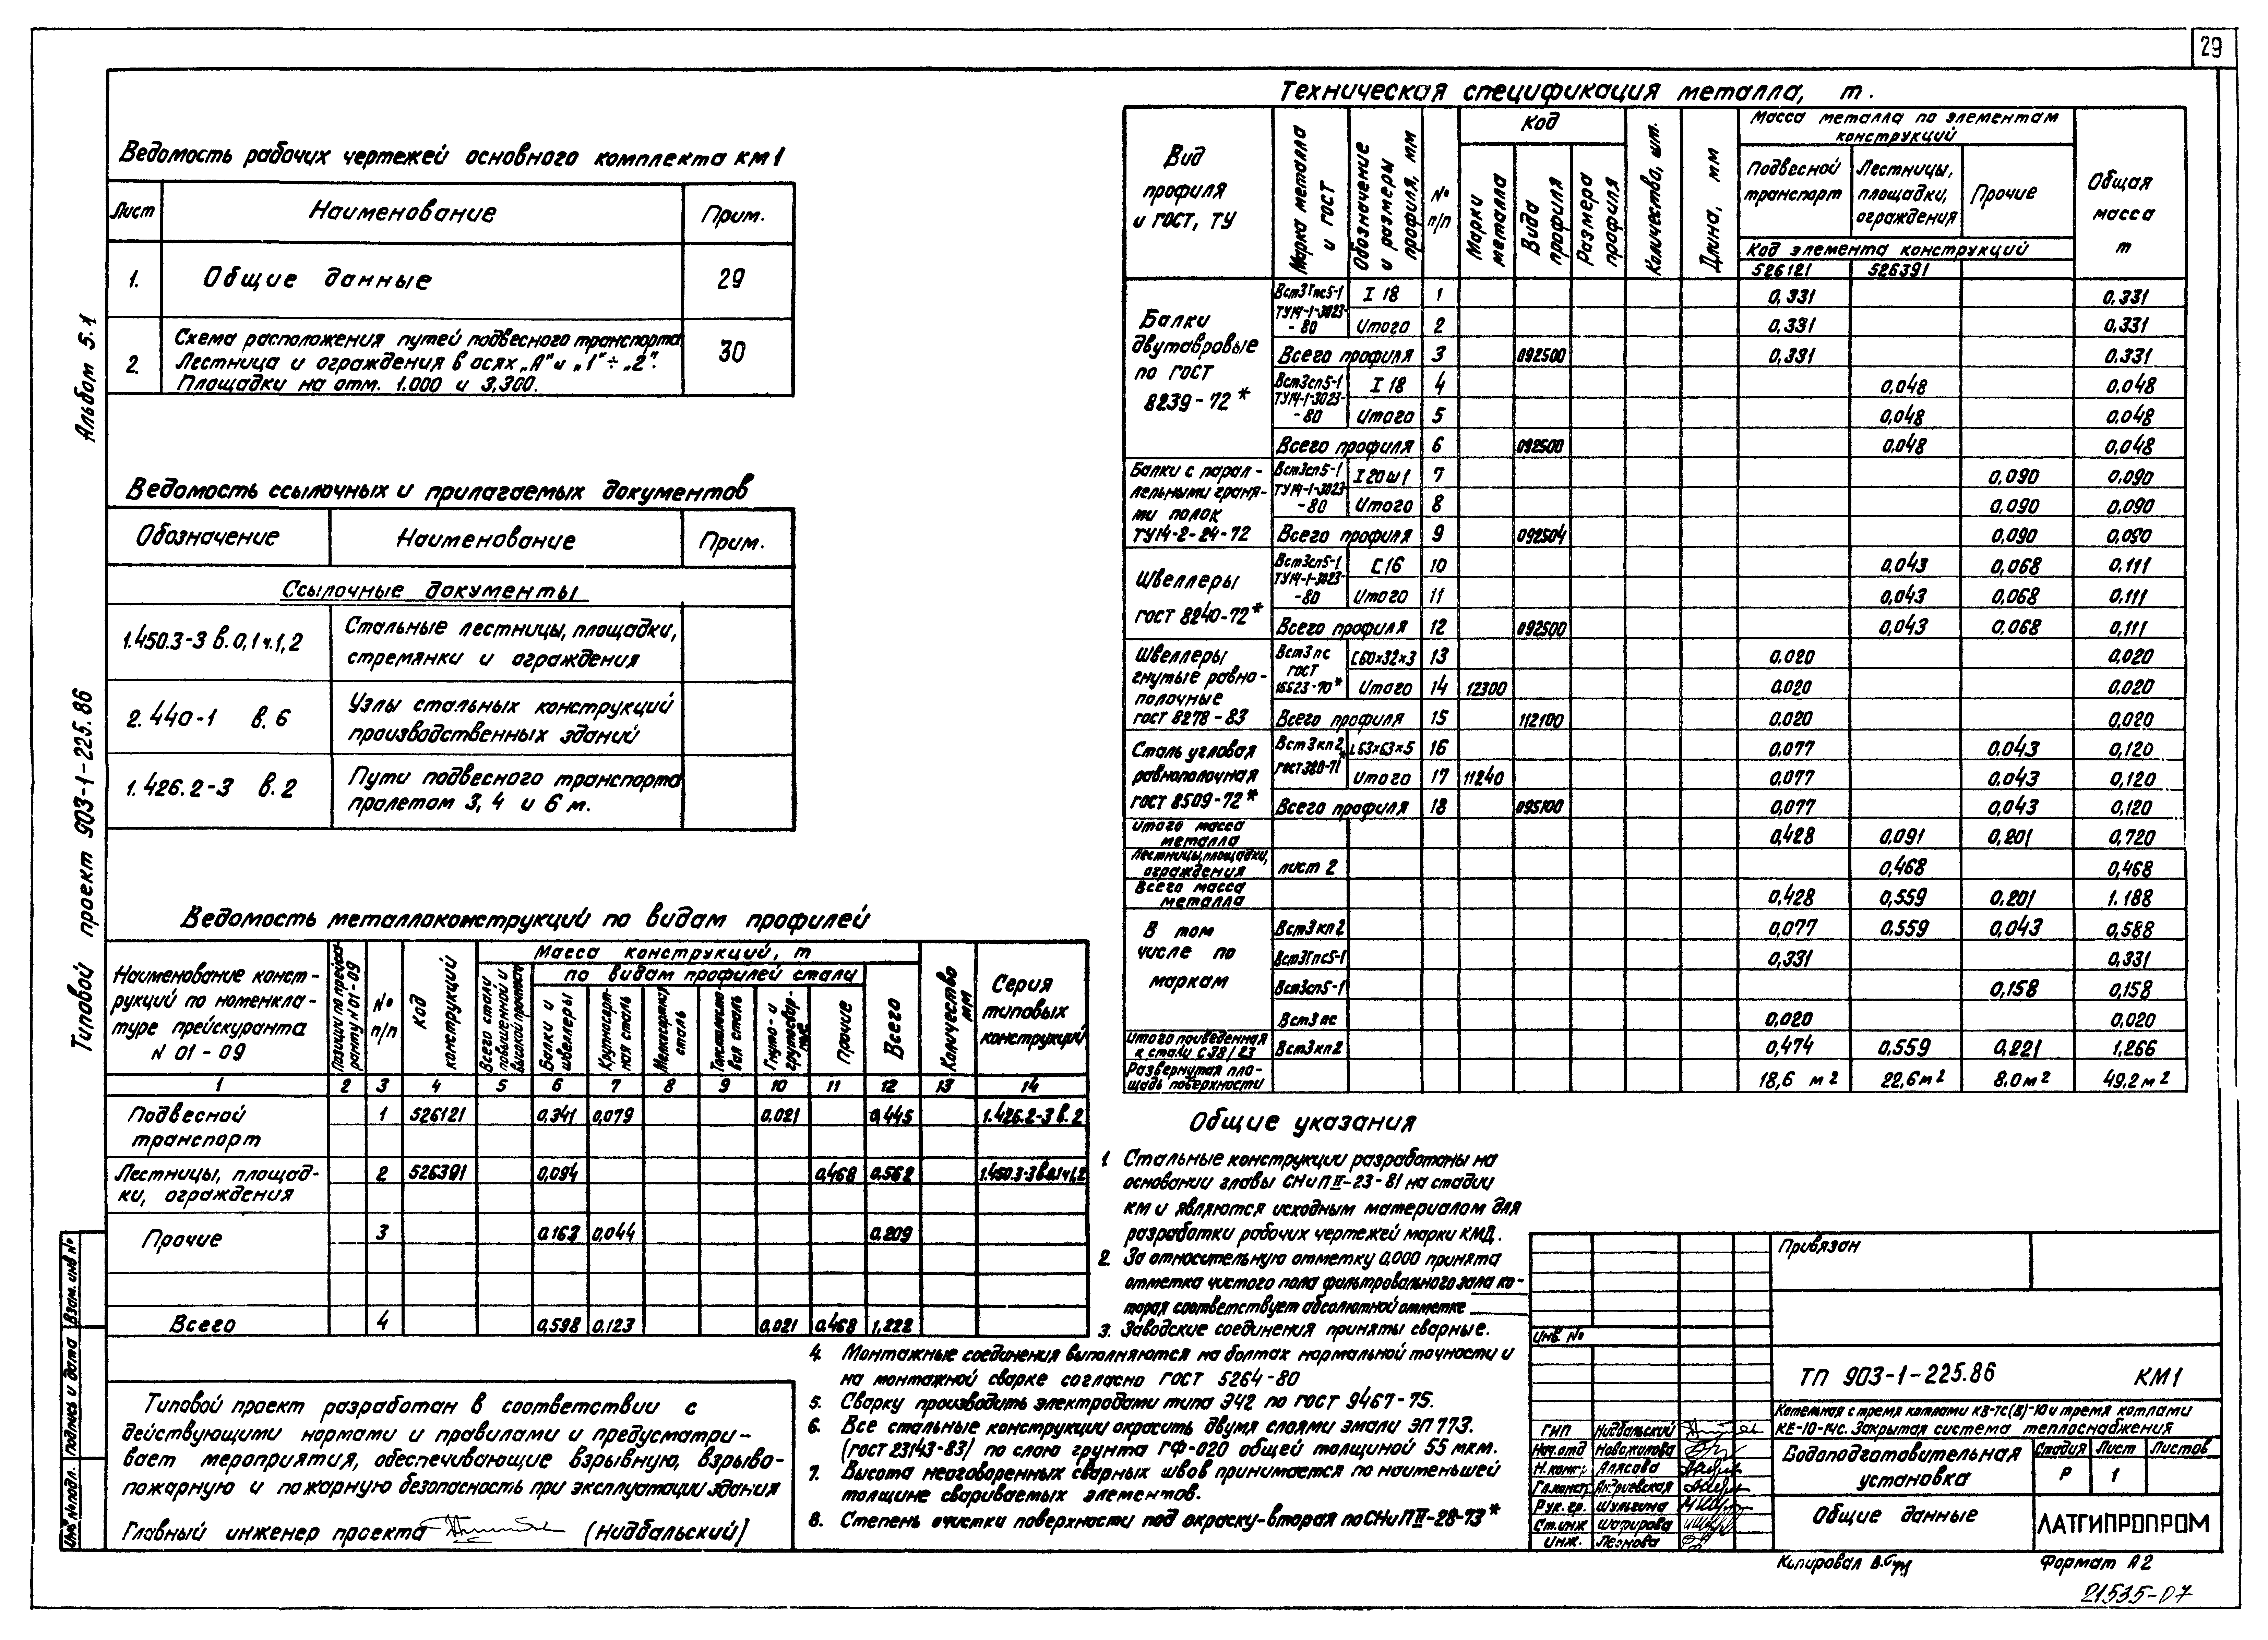 29
Альбом 5.1
Типовой проект 903-1-225.86
Ведомость рабочих чертежей основного комплекта КМ1
Лист | Наименование | Прим.
1. | Общие данные | 29
2. | Схема расположения путей подвесного транспорта.
Лестница и ограждения в осях „А" и „1"÷„2".
Площадки на отм. 1.000 и 3,300. | 30
Ведомость ссылочных и прилагаемых документов
Обозначение | Наименование | Прим.
Ссылочные документы
1.450.3-3 в.0,1ч.1,2 | Стальные лестницы, площадки,
стремянки и ограждения
2.440-1 в.6 | Узлы стальных конструкций
производственных зданий
1.426.2-3 в.2 | Пути подвесного транспорта
пролетом 3, 4 и 6 м.
Ведомость металлоконструкций по видам профилей
Наименование конст-
рукций по номенкла-
туре прейскуранта
N 01-09
Позиции по прейску-
ранту N 01-09
№ п/п
Код конструкций
Масса конструкций, т
Всего стали повышенной и высокой прочности
по видам профилей стали
Балки и швеллеры
Крупносорт-
ная сталь
Мелкосортн.
сталь
Толстолисто-
вая сталь
Гнуто- и гнутосвар-
ные
Прочие
Всего
Количество шт
Серия типовых конструкций
1 | 2 | 3 | 4 | 5 | 6 | 7 | 8 | 9 | 10 | 11 | 12 | 13 | 14
Подвесной транспорт | 1 | 526121 | 0.341 | 0.079 | 0.021 | 0.445 | 1.426.2-3 в.2
Лестницы, площад-
ки, ограждения | 2 | 526391 | 0.094 | 0.468 | 0.562 | 1.450.3-3 в.0,1ч.1,2
Прочие | 3 | 0.163 | 0.044 | 0.209
Всего | 4 | 0.598 | 0.123 | 0.021 | 0.468 | 1.222
Типовой проект разработан в соответствии с
действующими нормами и правилами и предусматри-
вает мероприятия, обеспечивающие взрывную, взрыво-
пожарную и пожарную безопасность при эксплуатации здания
Главный инженер проекта (Нидбальский)
Техническая спецификация металла, т.
Вид профиля и ГОСТ, ТУ
Марка металла и ГОСТ
Обозначение и размеры профиля, мм
№ п/п
Код
Марки металла
Вида профиля
Размера профиля
Количество, шт.
Длина, мм
Масса металла по элементам конструкций
Подвесной транспорт
Лестницы, площадки, ограждения
Прочие
Общая масса т
Код элемента конструкций
526121 | 526391
Балки двутавровые по ГОСТ 8239-72*
Вст3Гпс5-1 ТУ14-1-3023-80 | I 18 | 1 | 0,331 | 0,331
Итого | 2 | 0,331 | 0,331
Всего профиля | 3 | 092500 | 0,331 | 0.331
Вст3сп5-1 ТУ14-1-3023-80 | I 18 | 4 | 0,048 | 0,048
Итого | 5 | 0,048 | 0,048
Всего профиля | 6 | 092500 | 0,048 | 0,048
Балки с парал-
лельными граня-
ми полок
ТУ14-2-24-72
Вст3сп5-1 ТУ14-1-3023-80 | I 20ш1 | 7 | 0,090 | 0.090
Итого | 8 | 0,090 | 0,090
Всего профиля | 9 | 092504 | 0.090 | 0,090
Швеллеры
ГОСТ 8240-72*
Вст3сп5-1 ТУ14-1-3023-80 | С16 | 10 | 0.043 | 0,068 | 0.111
Итого | 11 | 0,043 | 0,068 | 0.111
Всего профиля | 12 | 092500 | 0,043 | 0,068 | 0,111
Швеллеры
гнутые равно-
полочные
ГОСТ 8278-83
Вст3пс ГОСТ 16523-70* | С60×32×3 | 13 | 0.020 | 0,020
Итого | 14 | 12300 | 0.020 | 0.020
Всего профиля | 15 | 112100 | 0.020 | 0,020
Сталь угловая
равнополочная
ГОСТ 8509-72*
Вст3кп2 ГОСТ 380-71* | L63×63×5 | 16 | 0.077 | 0.043 | 0,120
Итого | 17 | 11240 | 0.077 | 0.043 | 0,120
Всего профиля | 18 | 095100 | 0,077 | 0,043 | 0,120
Итого масса металла | 0,428 | 0,091 | 0,201 | 0,720
Лестницы, площадки, ограждения | лист 2 | 0,468 | 0,468
Всего масса металла | 0,428 | 0,559 | 0.201 | 1.188
В том числе по маркам
Вст3кп2 | 0,077 | 0.559 | 0,043 | 0.588
Вст3Гпс5-1 | 0.331 | 0,331
Вст3сп5-1 | 0,158 | 0,158
Вст3пс | 0,020 | 0,020
Итого приведенная к стали С38/23 | Вст3кп2 | 0,474 | 0,559 | 0,221 | 1,266
Развернутая пло-
щадь поверхности | 18,6 м2 | 22,6м2 | 8.0м2 | 49.2м2
Общие указания
1. Стальные конструкции разработаны на
основании главы СНиП II-23-81 на стадии
КМ и являются исходным материалом для
разработки рабочих чертежей марки КМД.
2. За относительную отметку 0,000 принята
отметка чистого пола фильтровального зала ко-
торая соответствует абсолютной отметке
3. Заводские соединения приняты сварные.
4. Монтажные соединения выполняются на болтах нормальной точности и
на монтажной сварке согласно ГОСТ 5264-80
5. Сварку производить электродами типа Э42 по ГОСТ 9467-75.
6. Все стальные конструкции окрасить двумя слоями эмали ЭП773.
(ГОСТ 23143-83) по слою грунта ГФ-020 общей толщиной 55 мкм.
7. Высота неоговоренных сварных швов принимается по наименьшей
толщине свариваемых элементов.
8. Степень очистки поверхности под окраску-вторая по СНиП III-28-73*
Инв. № подл. | Подпись и дата | Взам. инв №
Привязан
Инв. №
ТП 903-1-225.86 КМ1
Котельная с тремя котлами КВ-ТС(В)-10 и тремя котлами
КЕ-10-14С. Закрытая система теплоснабжения
ГИП | Нидбальский
Нач.отд | Новожилова
Н.контр. | Алясова
Гл.констр. | Андриевская
Рук. гр. | Шульгина
Ст.инж | Шафирова
Инж. | Леонова
Водоподготовительная
установка
Стадия | Лист | Листов
Р | 1
Общие данные
ЛАТГИПРОПРОМ
Копировал
Формат А2
21535-07